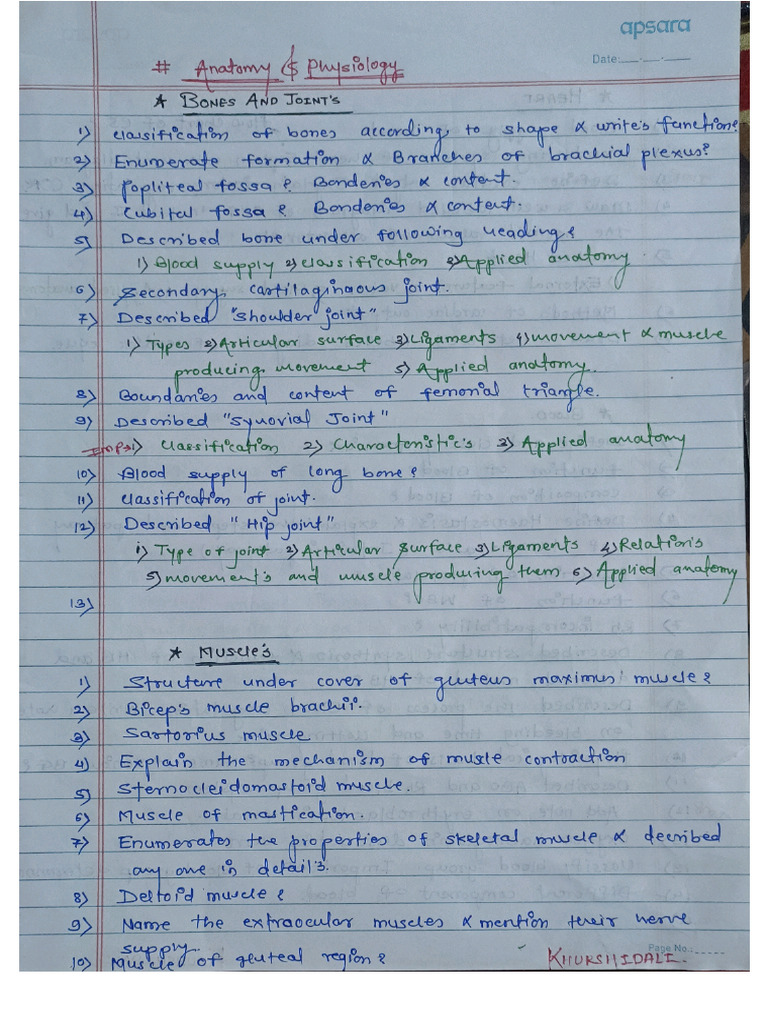 apsara
Date:
# Anatomy & Physiology
* BONES AND JOINT'S
1) classification of bones according to shape & write's function?
2) Enumerate formation & Branches of brachial plexus?
3) Popliteal fossa? Borderies & content.
4) Cubital fossa? Borderies & content.
5) Described bone under following heading?
1) Blood supply 2) classification 3) Applied anatomy
6) Secondary cartilaginaous joint.
7) Described "Shoulder joint"
1) Types 2) Articular surface 3) Ligaments 4) movement & muscle
producing movement 5) Applied anatomy.
8) Boundaries and content of femorial triangle.
9) Described "Synovial Joint"
Imp 1) classification 2) Characteristic's 3) Applied anatomy
10) Blood supply of long bone?
11) classification of joint.
12) Described "Hip joint"
1) Type of joint 2) Articular surface 3) Ligaments 4) Relation's
5) movement's and muscle producing them 6) Applied anatomy
13)
* MUSCLE'S
1) Structure under cover of gluteus maximus muscle?
2) Bicep's muscle brachii.
3) Sartorius muscle
4) Explain the mechanism of muscle contraction
5) Sternocleidomastoid muscle.
6) Muscle of mastication.
7) Enumerates the properties of skeletal muscle & decribed
any one in detail's.
8) Deltoid muscle?
9) Name the extraocular muscles & mention their nerve
supply.
10) Muscle of gluteal region?
Page No.:
KHURSHIDALI.